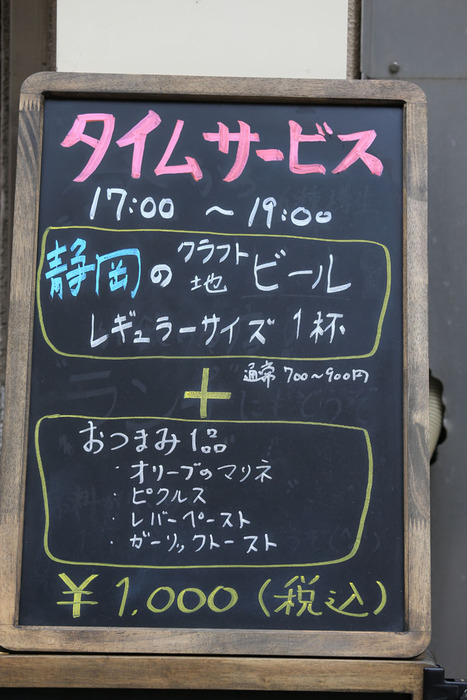 タイムサービス
17:00 ～19:00
静岡のクラフト地ビール
レギュラーサイズ 1杯
通常 700～900円
+
おつまみ1品
・オリーブのマリネ
・ピクルス
・レバーペースト
・ガーリックトースト
¥1,000(税込)